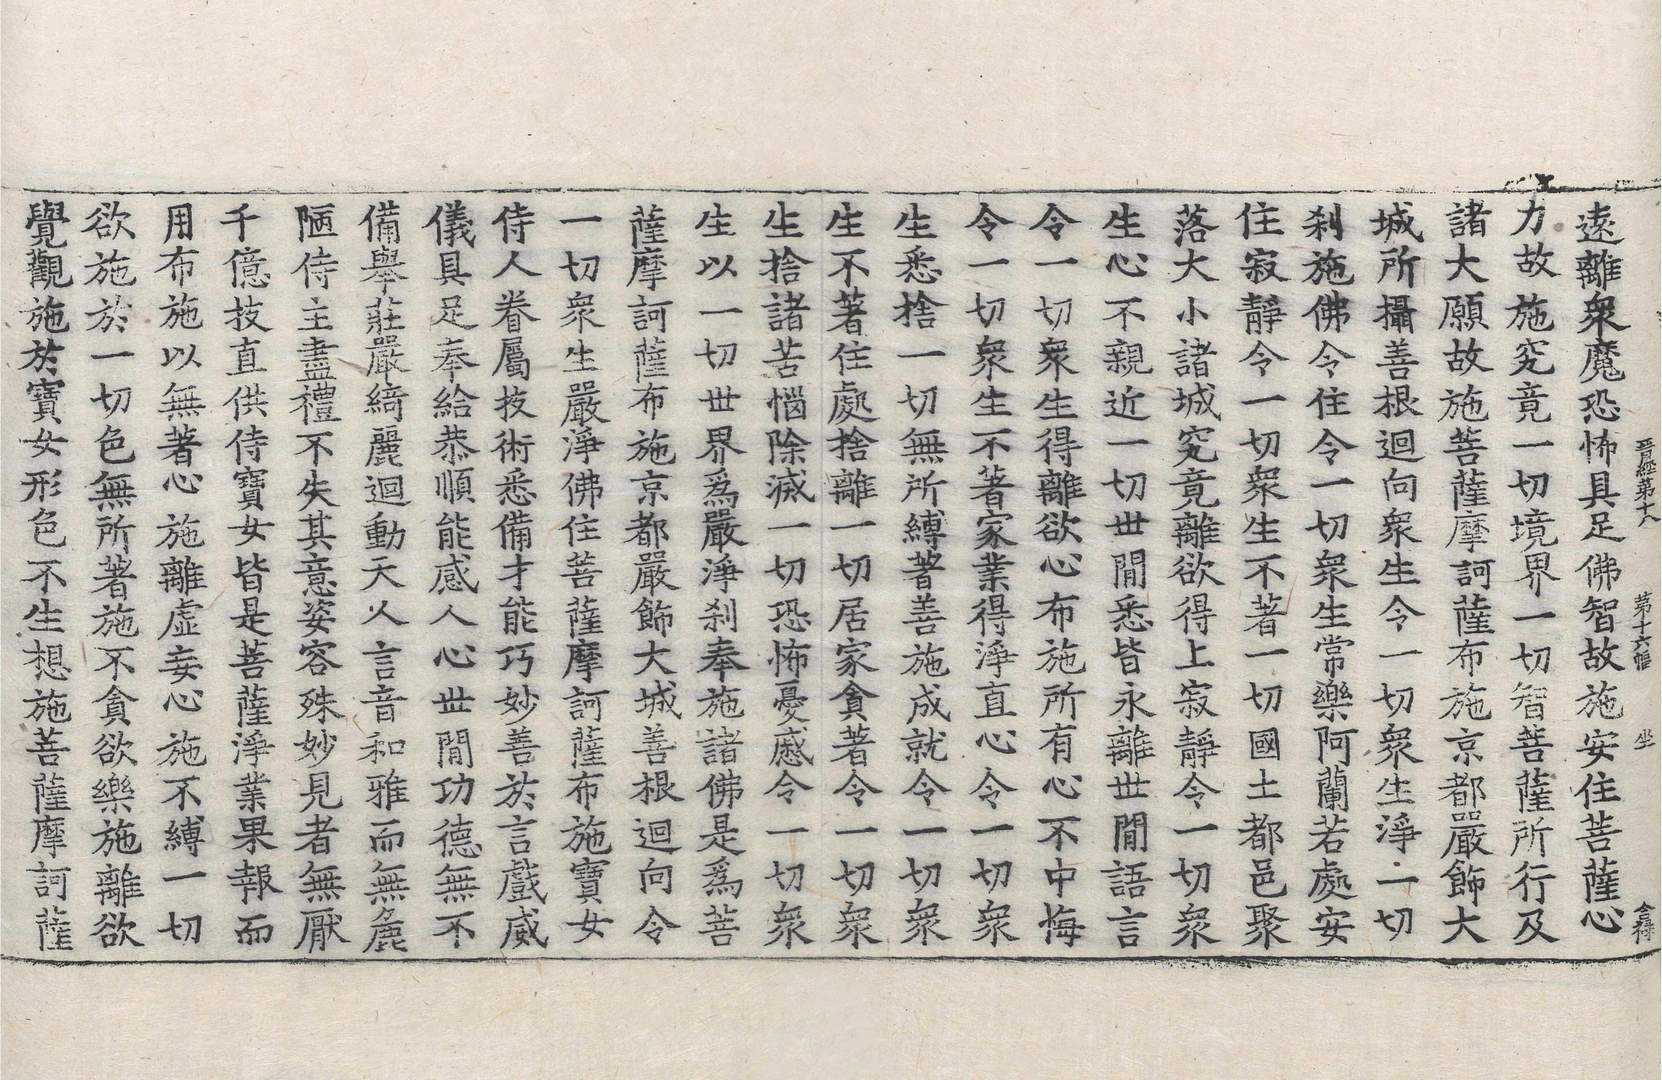 晋經第十八 第十六幅 坐 禄
遠離衆魔恐怖具足佛智故施安住菩薩心
力故施究竟一切境界一切智菩薩所行及
諸大願故施菩薩摩訶薩布施京都嚴飾大
城所攝善根迴向衆生令一切衆生淨一切
刹施佛令住令一切衆生常樂阿蘭若處安
住寂靜令一切衆生不著一切國土都邑聚
落大小諸城究竟離欲得上寂靜令一切衆
生心不親近一切世間悉皆永離世間語言
令一切衆生得離欲心布施所有心不中悔
令一切衆生不著家業得淨直心令一切衆
生悉捨一切無所縛著善施成就令一切衆
生不著住處捨離一切居家貪著令一切衆
生捨諸苦惱除滅一切恐怖憂慼令一切衆
生以一切世界爲嚴淨刹奉施諸佛是爲菩
薩摩訶薩布施京都嚴飾大城善根迴向令
一切衆生嚴淨佛住菩薩摩訶薩布施寶女
侍人眷屬技術悉備才能巧妙善於言戲威
儀具足奉給恭順能感人心世間功德無不
備舉莊嚴綺麗迴動天人言音和雅而無麁
陋侍主盡禮不失其意姿容殊妙見者無厭
千億技直供侍寶女皆是菩薩淨業果報而
用布施以無著心施離虛妄心施不縛一切
欲施於一切色無所著施不貪欲樂施離欲
覺觀施於寶女形色不生想施菩薩摩訶薩